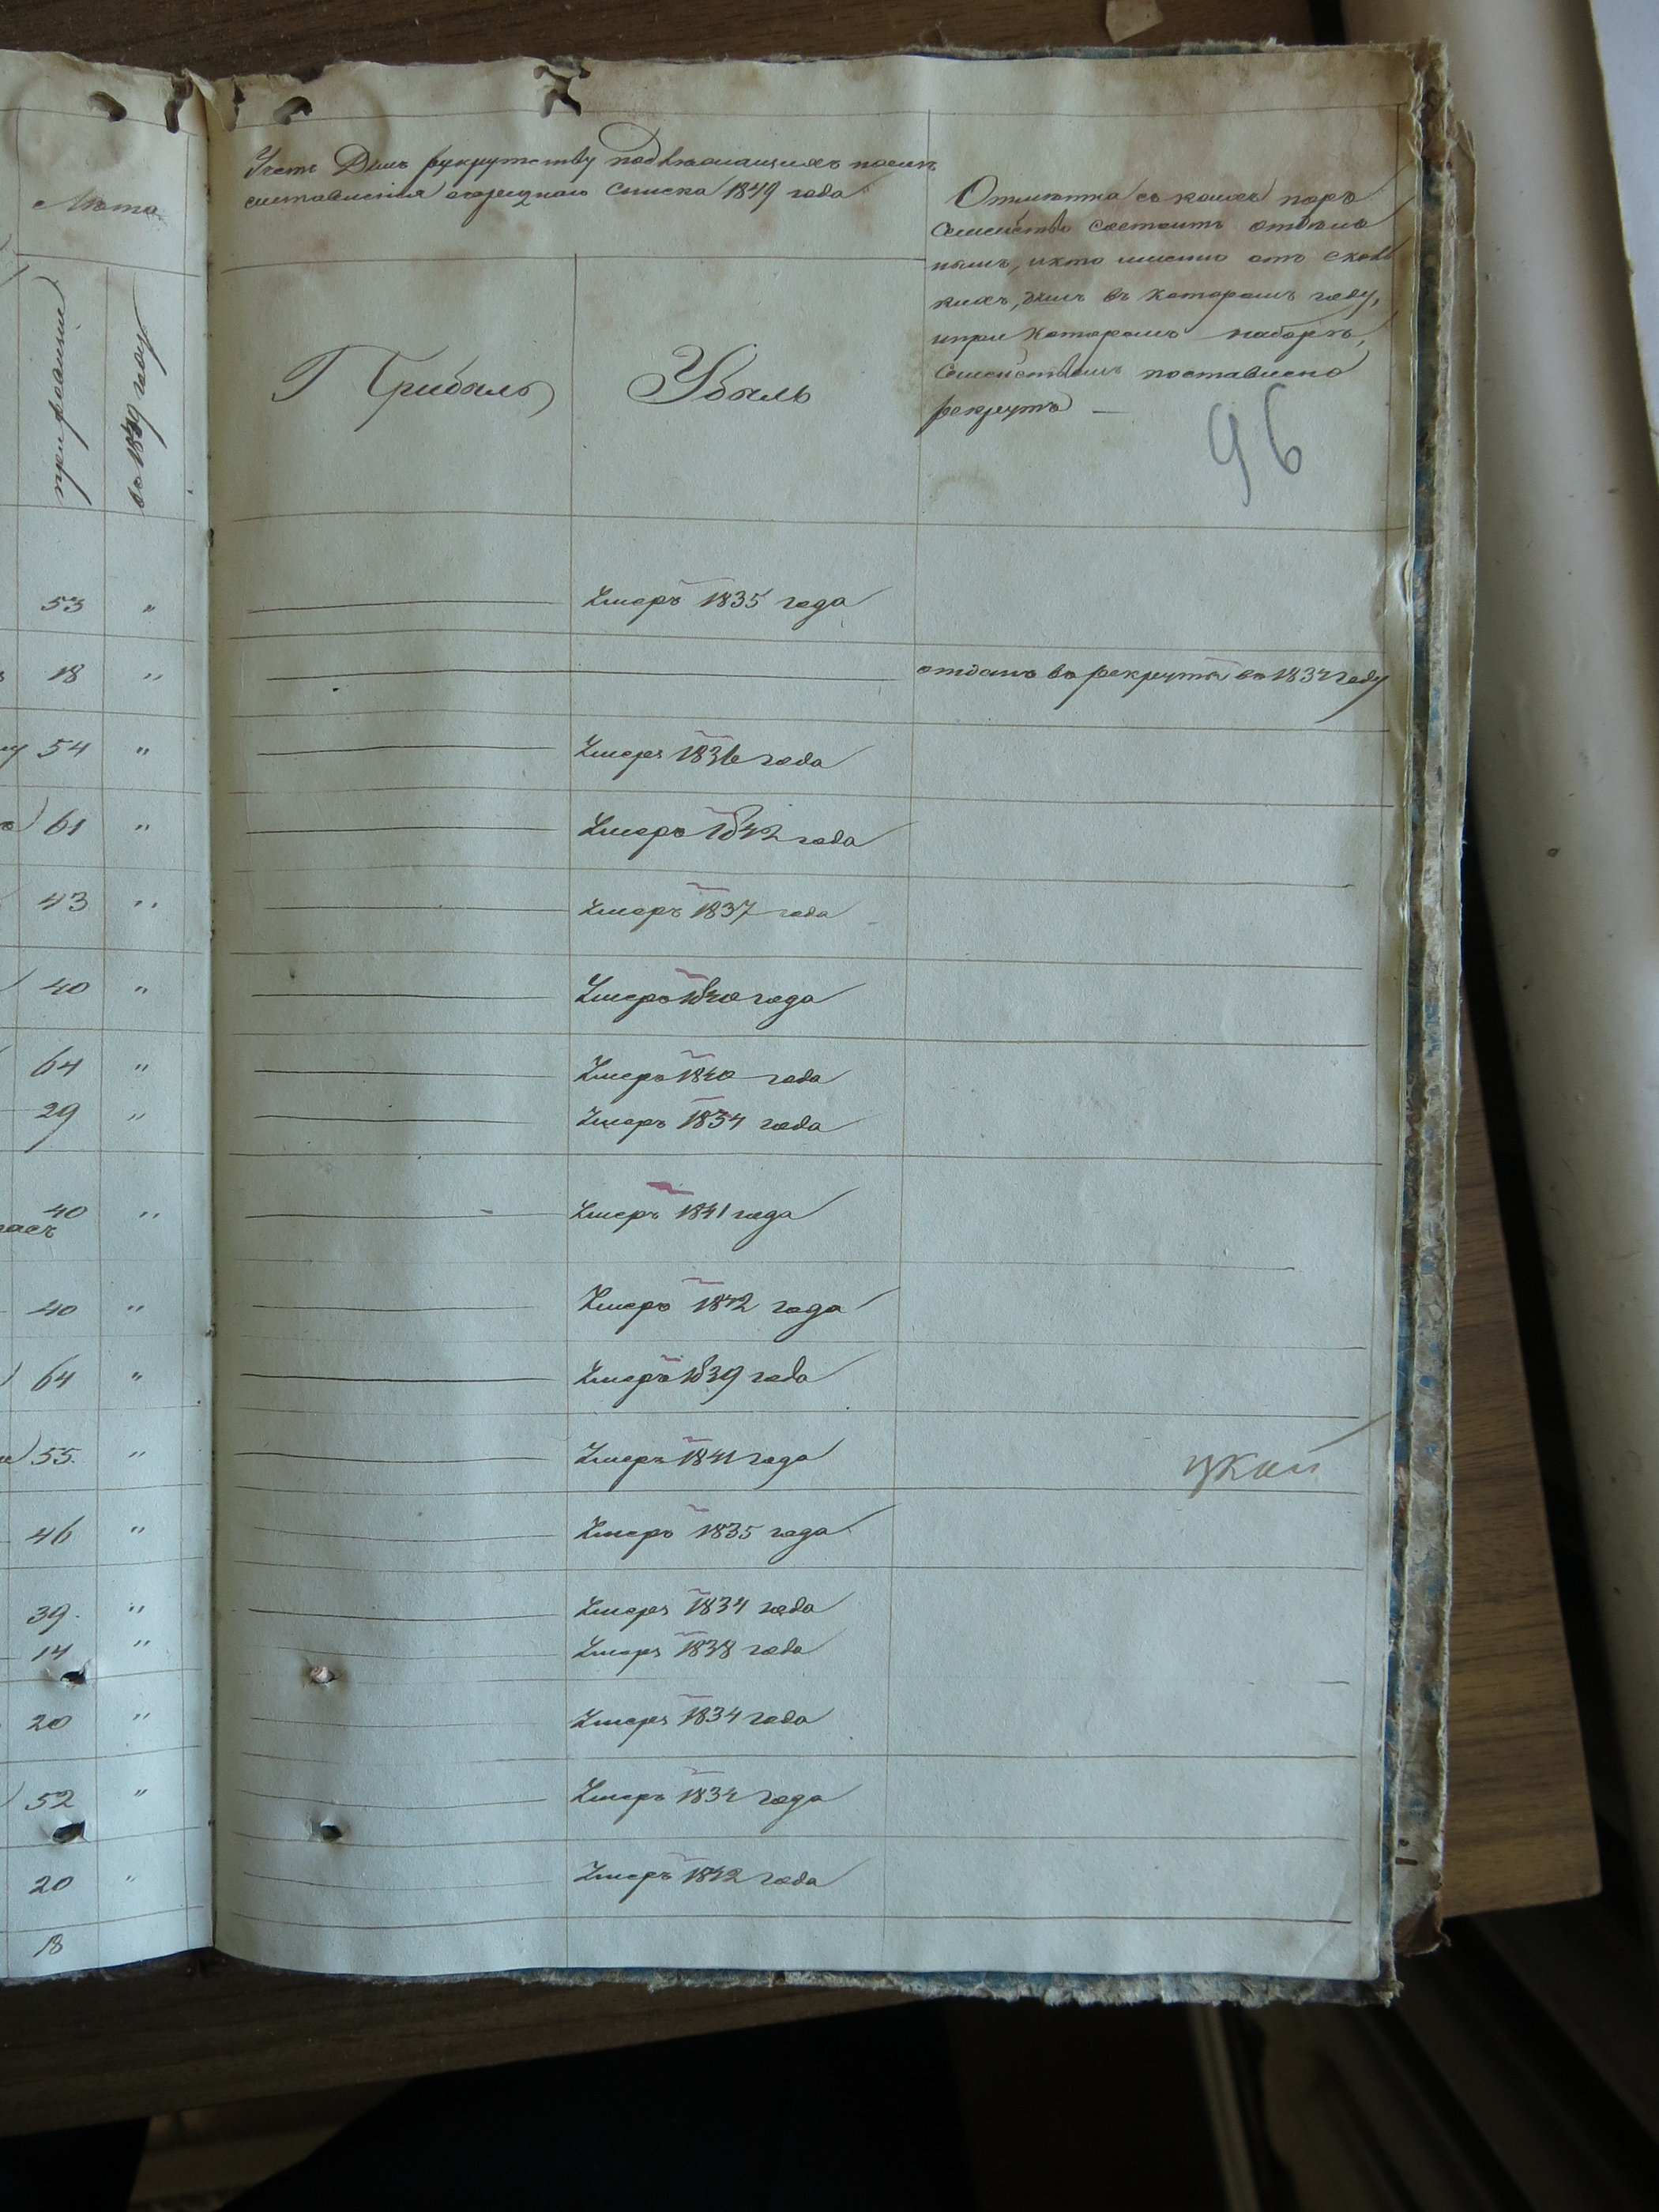 Лѣта
при ревизіи
въ 1849 году
Учетъ душъ рекрутству подлежащихъ послѣ
составленія очереднаго списка 1849 года
Прибыль
Убыль
Отмѣтка съ коихъ поръ
Семейство состоитъ отдѣль
нымъ, и кто именно отъ
душъ въ которомъ году,
и при которомъ наборѣ,
Семействомъ поставлено
рекрутъ —
96
53 " Умеръ 1835 года
18 " отданъ въ рекруты въ 1834 году
54 " Умеръ 1836 года
61 " Умеръ 1842 года
43 " Умеръ 1837 года
40 " Умеръ 1840 года
64 " Умеръ 1840 года
29 " Умеръ 1834 года
40 " Умеръ 1841 года
40 " Умеръ 1842 года
64 " Умеръ 1839 года
55. " Умеръ 1841 года
46 " Умеръ 1835 года
39. " Умеръ 1834 года
14 " Умеръ 1838 года
20 " Умеръ 1834 года
52 " Умеръ 1834 года
20 " Умеръ 1842 года
18